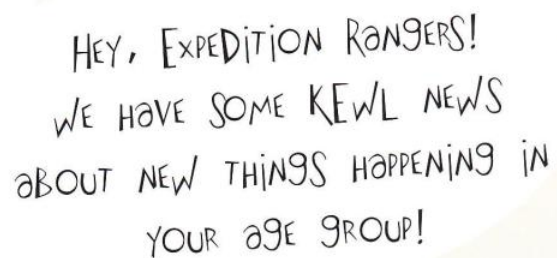 HEY, EXPEDITION RANGERS!
WE HAVE SOME KEWL NEWS
ABOUT NEW THINGS HAPPENING IN
YOUR AGE GROUP!